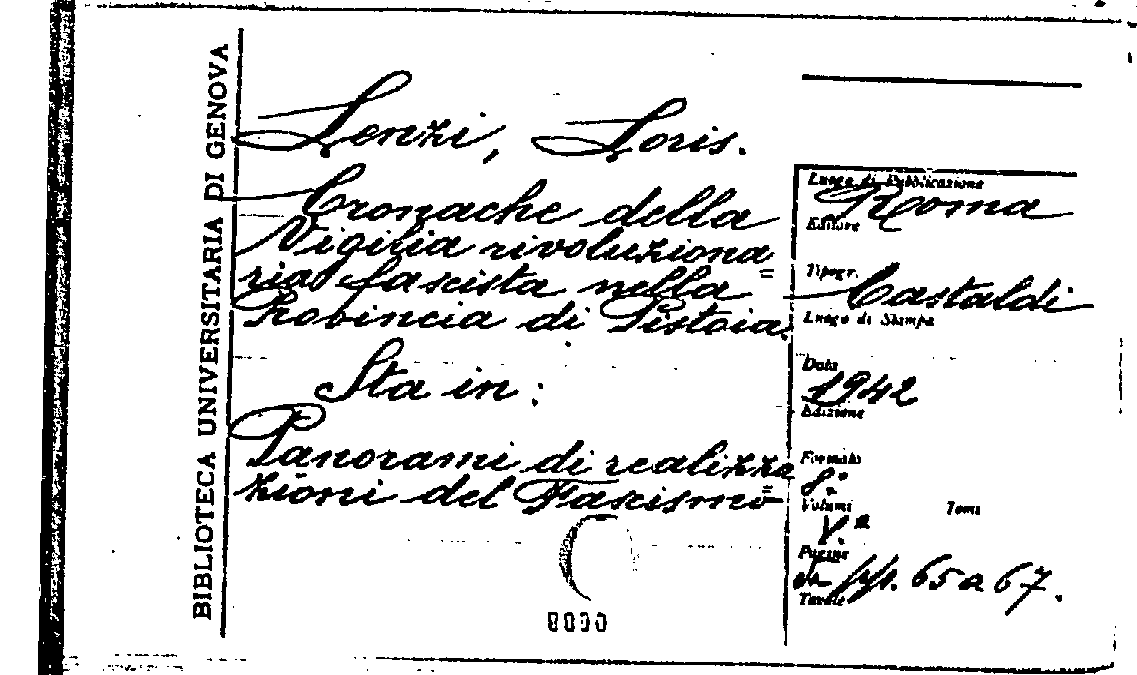 BIBLIOTECA UNIVERSITARIA DI GENOVA
Lenzi, Loris.
Cronache della
Vigilia rivoluziona
ria fascista nella
Provincia di Pistoia.
Sta in:
Panorami di realizza
zioni del Fascismo
Luogo di Pubblicazione
Roma
Editore
Tipogr.
Castaldi
Luogo di Stampa
Data
1942
Edizione
Formato
8°
Volumi Tomi
V.°
Pagine
da pp. 65 a 67.
Tavole